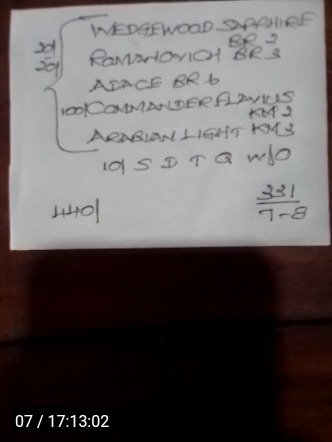 WEDGEWOOD SAPPHIRE
BR 2
20/
20/
ROMANOVICH BR 3
ADACE BR 6
100/ COMMANDER FLAVIUS
KM 2
ARABIAN LIGHT KM 3
10/ S D T Q W/O
440/
331
7-8
07 / 17:13:02